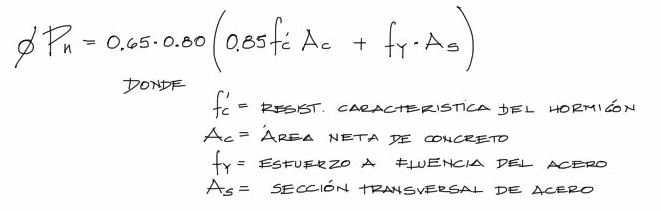 φPn = 0.65·0.80 (0.85f'c Ac + fy·As)
DONDE
f'c = RESIST. CARACTERISTICA DEL HORMIGÓN
Ac = ÁREA NETA DE CONCRETO
fy = ESFUERZO A FLUENCIA DEL ACERO
As = SECCIÓN TRANSVERSAL DE ACERO